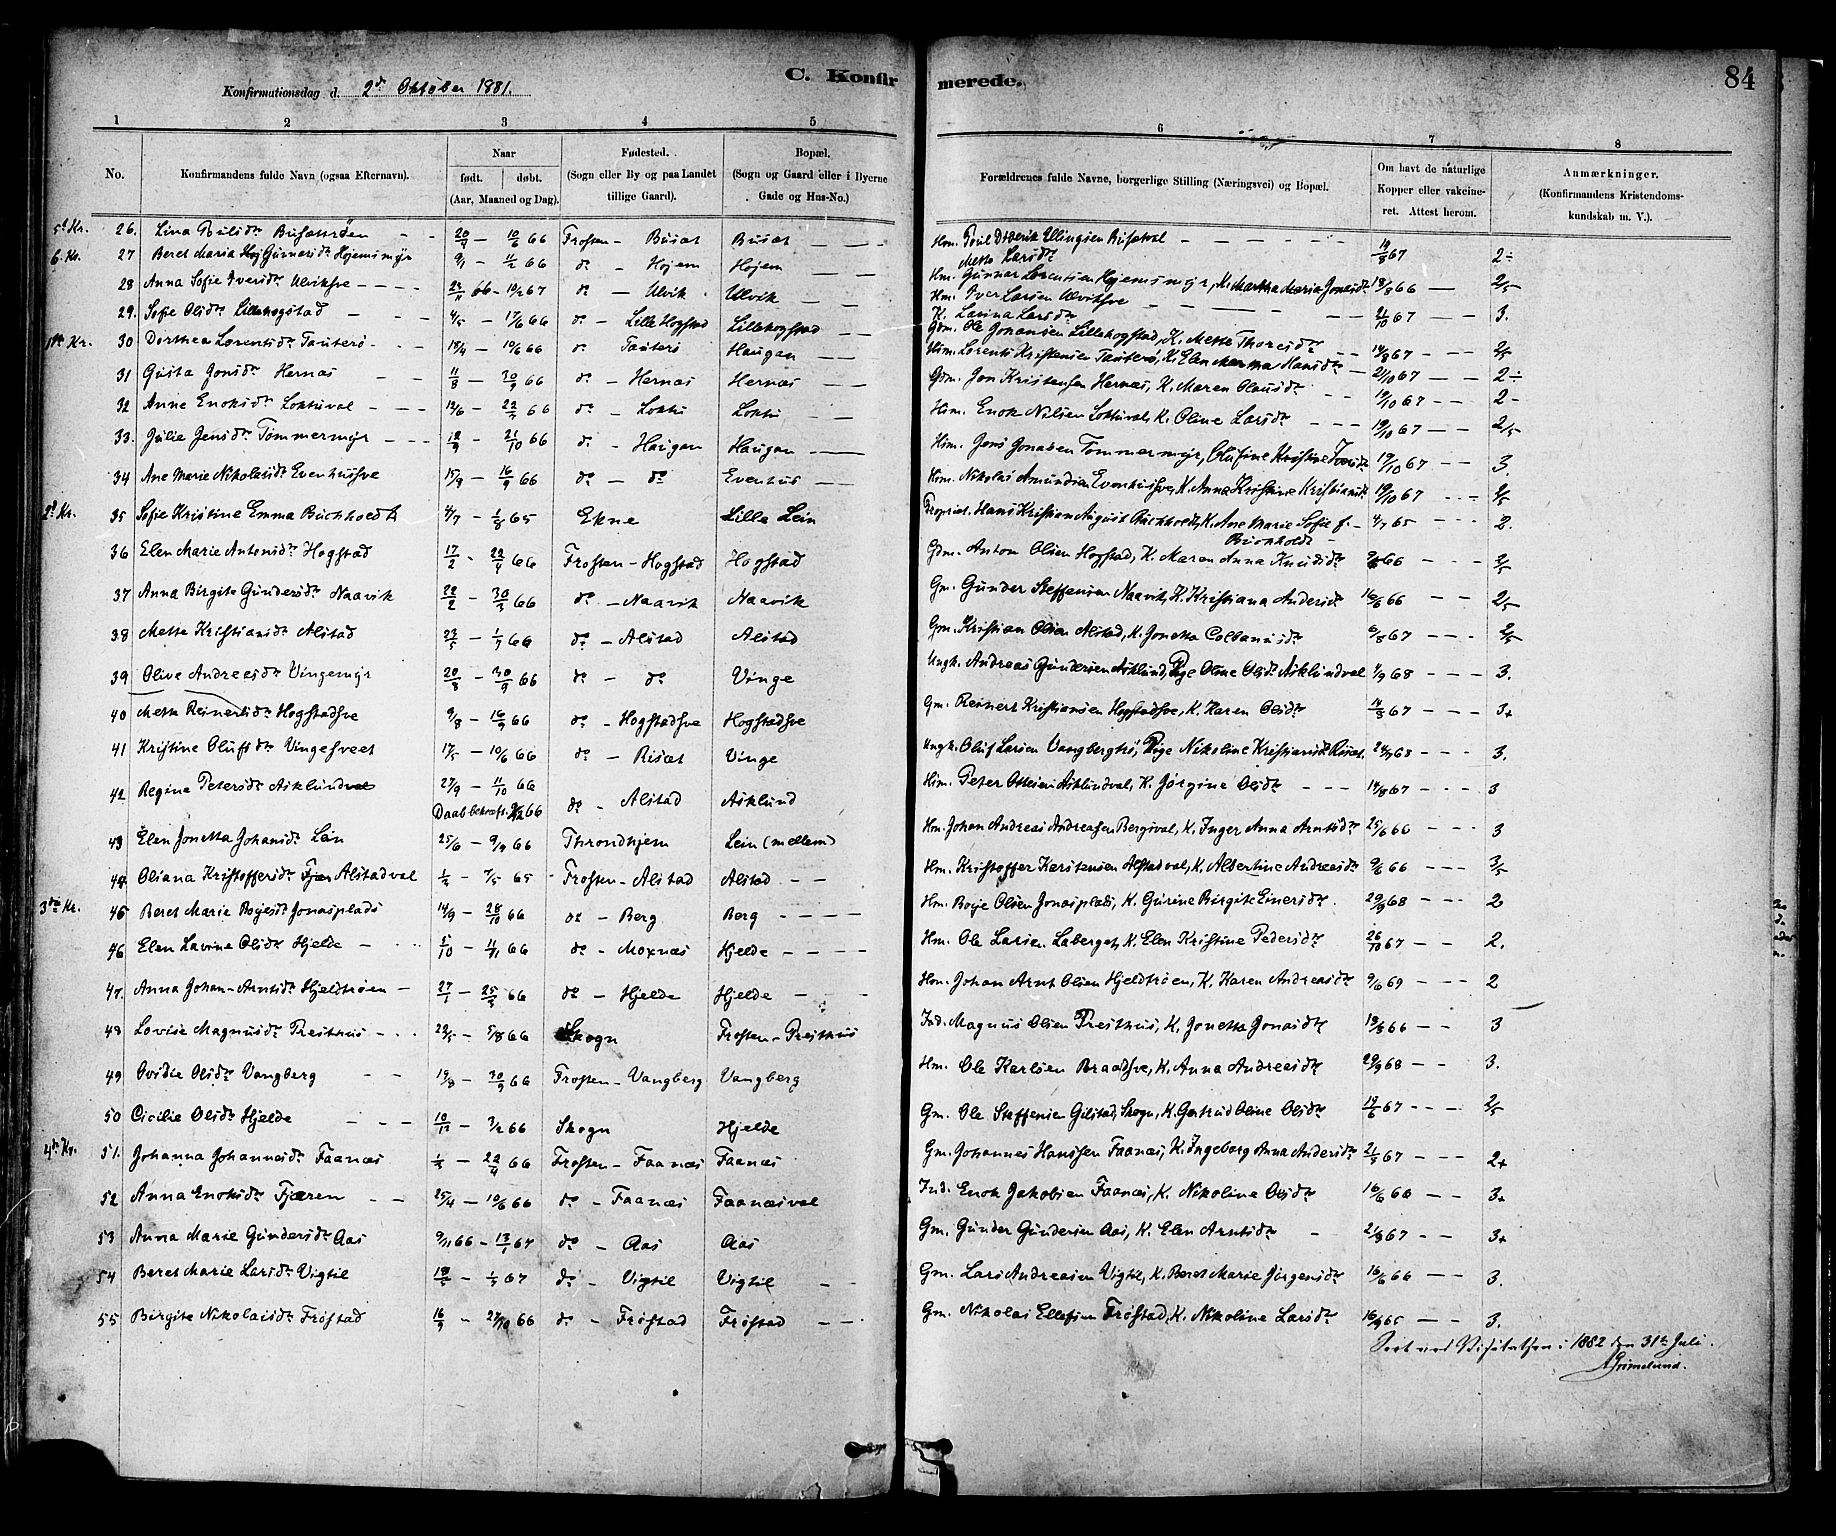 C. Konfirmerede. 84
Konfirmationsdag d. 2d Oktober 1881.
1 2 3 4 5 6 7 8
No. Konfirmandens fulde Navn (ogsaa Efternavn). Naar født. døbt. (Aar, Maaned og Dag). Fødested. (Sogn eller By og paa Landet tillige Gaard). Bopæl. (Sogn og Gaard eller i Byerne Gade og Hus-No.) Forældrenes fulde Navne, borgerlige Stilling (Næringsvei) og Bopæl. Om havt de naturlige Kopper eller vakcineret. Attest herom. Anmærkninger. (Konfirmandens Kristendomskundskab m. V.).
5t Kr. 26. Lina 20/4 — 10/6 66 Frosten — Busat Busat — — 67
6. Kr. 27 Beret Maria Gunnarsdr Højemsmyr 9/1 — 11/2 66 do — Højem Højem — — Hm. Gunnar Lorentsen Højemsmyr, K. Martha Maria Jonasdr 18/8 66 — 2÷
28 Anna Sofie Iversdr Ulvikhve — — 66 — 67 do — Ulvik Ulvik — — Hm. Iver Larsen Ulvikhve K. Lavina Larsdr 2/10 67 — 2/5
29. Sofie Olsdr Lillehogstad — — 4/5 — 17/6 66 do — Lille Hogstad Lillehogstad — — Gdm. Ole Johansen Lillehogstad, K. Mette Thoresdr 67 3.
1ste Kr. 30 Dorthea Lorentsdr Tauterø — — 18/4 — 10/6 66 do Tauterø Haugan — — Hsm. Lorents Kristensen Tauterø, K. Elen Martha Hansdr 67 2/5
31 Gusta Jonsdr Hernæs — — 11/8 — 30/9 66 do — Hernæs Hernæs — — Gdm. Jon Kristensen Hernæs, K. Maren Olausdr 2/10 67 — — 2÷
32 Anne Enoksdr Loktuval — — 12/6 — 66 do — Loktu Loktu — — Hsm. Enok Nilsen Loktuval, K. Oline Larsdr 19/10 67 — — 2-
33. Julie Jensdr Tømmermyr — — — 12/9 — 21/10 66 do — Haugan Haugan — — Hsm. Jens Jonassen Tømmermyr, Olufine Kristine 19/10 67 — — 3.
34 Ane Marie Nikolaisdr Evenhushve 15/8 — 16/9 66 do — do Evenhus — — Hsm. Nikolas Amundsen Evenhushve, K. Anna Kristine Kristiansdr 19/10 67
2d Kr. 35 Sofie Kristine Emma Buchholdt 4/7 — 1/8 65 Ekne Lille Lein Propriet. Hans Kristian August Buchholdt, K. Ane Marie Sofie f. Buchholdt 4/7 65 — — 2.
36 Elen Marie Antonsdr Hogstad 17/2 — 22/4 66 Frosten — Hogstad Hogstad Gdm. Anton Olsen Hogstad, K. Maren Anna Knudsdr 66
37 Anna Birgite Gundersdr Naavik 22/2 — 30/3 66 do — Naavik Naavik Gm. Gunder Steffensen Naavik, K. Kristiana Andersdr 16/6 66 — — 2/5
38 Mette Kristiansdr Alstad 23/5 — 1/7 66 do — Alstad Alstad Gm. Kristian Olsen Alstad, K. Jonetta Colbanusdr 6/8 67 — — — 2/5
39 Olive Andreasdr Vingemyr 20/8 — 30/9 66 do — do Vinge Ungk. Andreas Gundersen Aiklund, Pige Oline Olsdr Aiklundval 1/9 68 — — — 3.
40 Mette Reinertsdr Hogstadhve 9/8 — 16/9 66 do — Hogstadhve Hogstadhve Gm. Reinert Kristiansen Hogstadhve, K. Karen Olsdr 14/8 67 — — 3+
41 Kristine Olufsdr Vingesveet 17/5 — 10/6 66 do — Risæt Vinge Ungk. Oluf Larsen Vangbergtrø, Pige Nikoline Kristiansdr Risæt. 68 — — — 3.
42 Regine Petersdr Aiklundval 27/9 — 11/10 66 Daab bekræft. 66 do — Alstad Aiklund Hsm. Peter Ottesen Aiklundval, K. Jørgine Olsdr — — — 14/8 67 — — 3
43 Elen Jonetta Johansdr Lein 25/6 — 9/9 66 Throndhjem Lein (mellem) Hm. Johan Andreas Andreassen Bergsval, K. Inger Anna Arntsdr 25/6 66 — — — 3
44 Oliana Kristoffersdr Alstadval 65 Frosten — Alstad Alstad — — Hm. Kristoffer Karstensen Alstadval, K. Albertine Andreasdr 9/6 66 — — — 3/5
3die Kr. 45 Beret Marie Boyesdr Jonasplads 14/9 — 28/10 66 do — Berg Berg — — — — Hm. Boye Olsen Jonasplads, K. Gurine Birgite Einersdr. 29/9 68 — — — 2
46 Elen Lavine Olsdr Hjelde — 5/10 — 4/1 66 do — Moxnæs Hjelde — — — — Hm. Ole Larsen Laberget, K. Elen Kristine Pedersdr 26/10 67 — — 2.
47. Anna Johan-Arntsdr Hjeldtrøen — 27/1 — 25/3 66 do — Hjelde Hjelde — — — Hm. Johan Arnt Olsen Hjeldtrøen, K. Karen Andreasdr 9/6 69 — — 2
48 Lovise Magnusdr Presthus — — 22/5 — 5/8 66 Skogn Frosten — Presthus Ind. Magnus Olsen Presthus, K. Jonetta Jonasdr 66 — — 3
49 Ovidie Olsdr Vangberg — — 19/8 — 30/9 66 Frosten — Vangberg Vangberg Hm. Ole Karlsen Braathve, K. Anna Andreasdr 29/9 68 — — 3.
50 Cicilie Olsdr Hjelde — — — 10/12 — 3/2 66 Skogn Hjelde Gm. Ole Steffensen Gilstad, Skogn, K. Gertrud Oline Olsdr 19/6 67 — — — 2/5
4de Kr. 51. Johanna Johannesdr Faanæs — 22/4 66 Frosten — Faanæs Faanæs Gm. Johannes Hanssen Faanæs, K. Ingeborg Anna Andersdr 67 — — — 2+
52 Anna Enoksdr Fjæren — — 25/4 — 10/6 66 do — Faanæs Faanæsval Ind. Enok Jakobsen Faanæs, K. Nikoline Olsdr 16/6 66 — — 3+
53 Anna Marie Gundersdr Aas 9/11 66 — 13/1 67 do — Aas Aas Gm. Gunder Gundersen Aas, K. Elen Arntsdr — 67 — — 3+
54 Beret Marie Larsdr Vigtil 67 do — Vigtil Vigtil — — Gm. Lars Andreasen Vigtil, K. Beret Marie Jørgensdr 16/6 66 — — 3.
55 Birgite Nikolaisdr Frøstad 16/9 — 27/10 66 do — Frøstad Frøstad — — Gm. Nikolai Ellefsen Frøstad, K. Nikoline Larsdr — — 3.
Seet ved Visitatsen i 1882 den 31te Juli.
Grimelund.